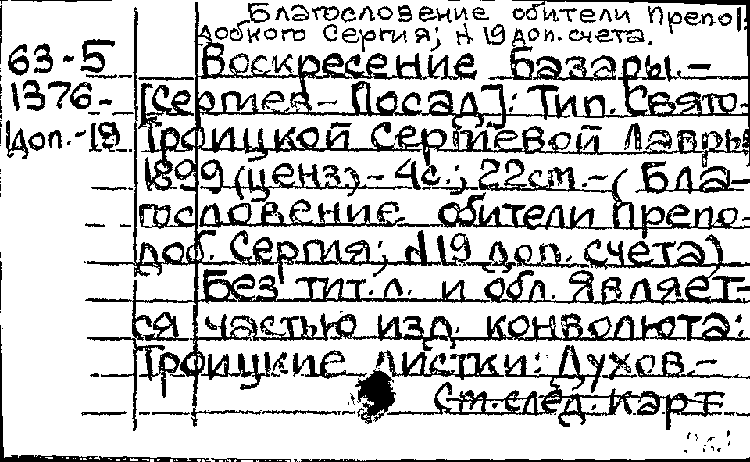 Благословение обители Препо
добного Сергия; N 19 доп. счета.
63-5 Воскресение Базары.-
1376- [Сергиев-Посад]: Тип. Свято-
доп.-19 Троицкой Сергиевой Лавры
1899 (ценз).- 4с.; 22cm.-( Бла-
гословение обители Препо-
доб. Сергия; N 19 доп. счета)
Без тит. л. и обл. Являет-
ся частью изд. конволюта:
Троицкие листки: Духов.-
См. след. карт